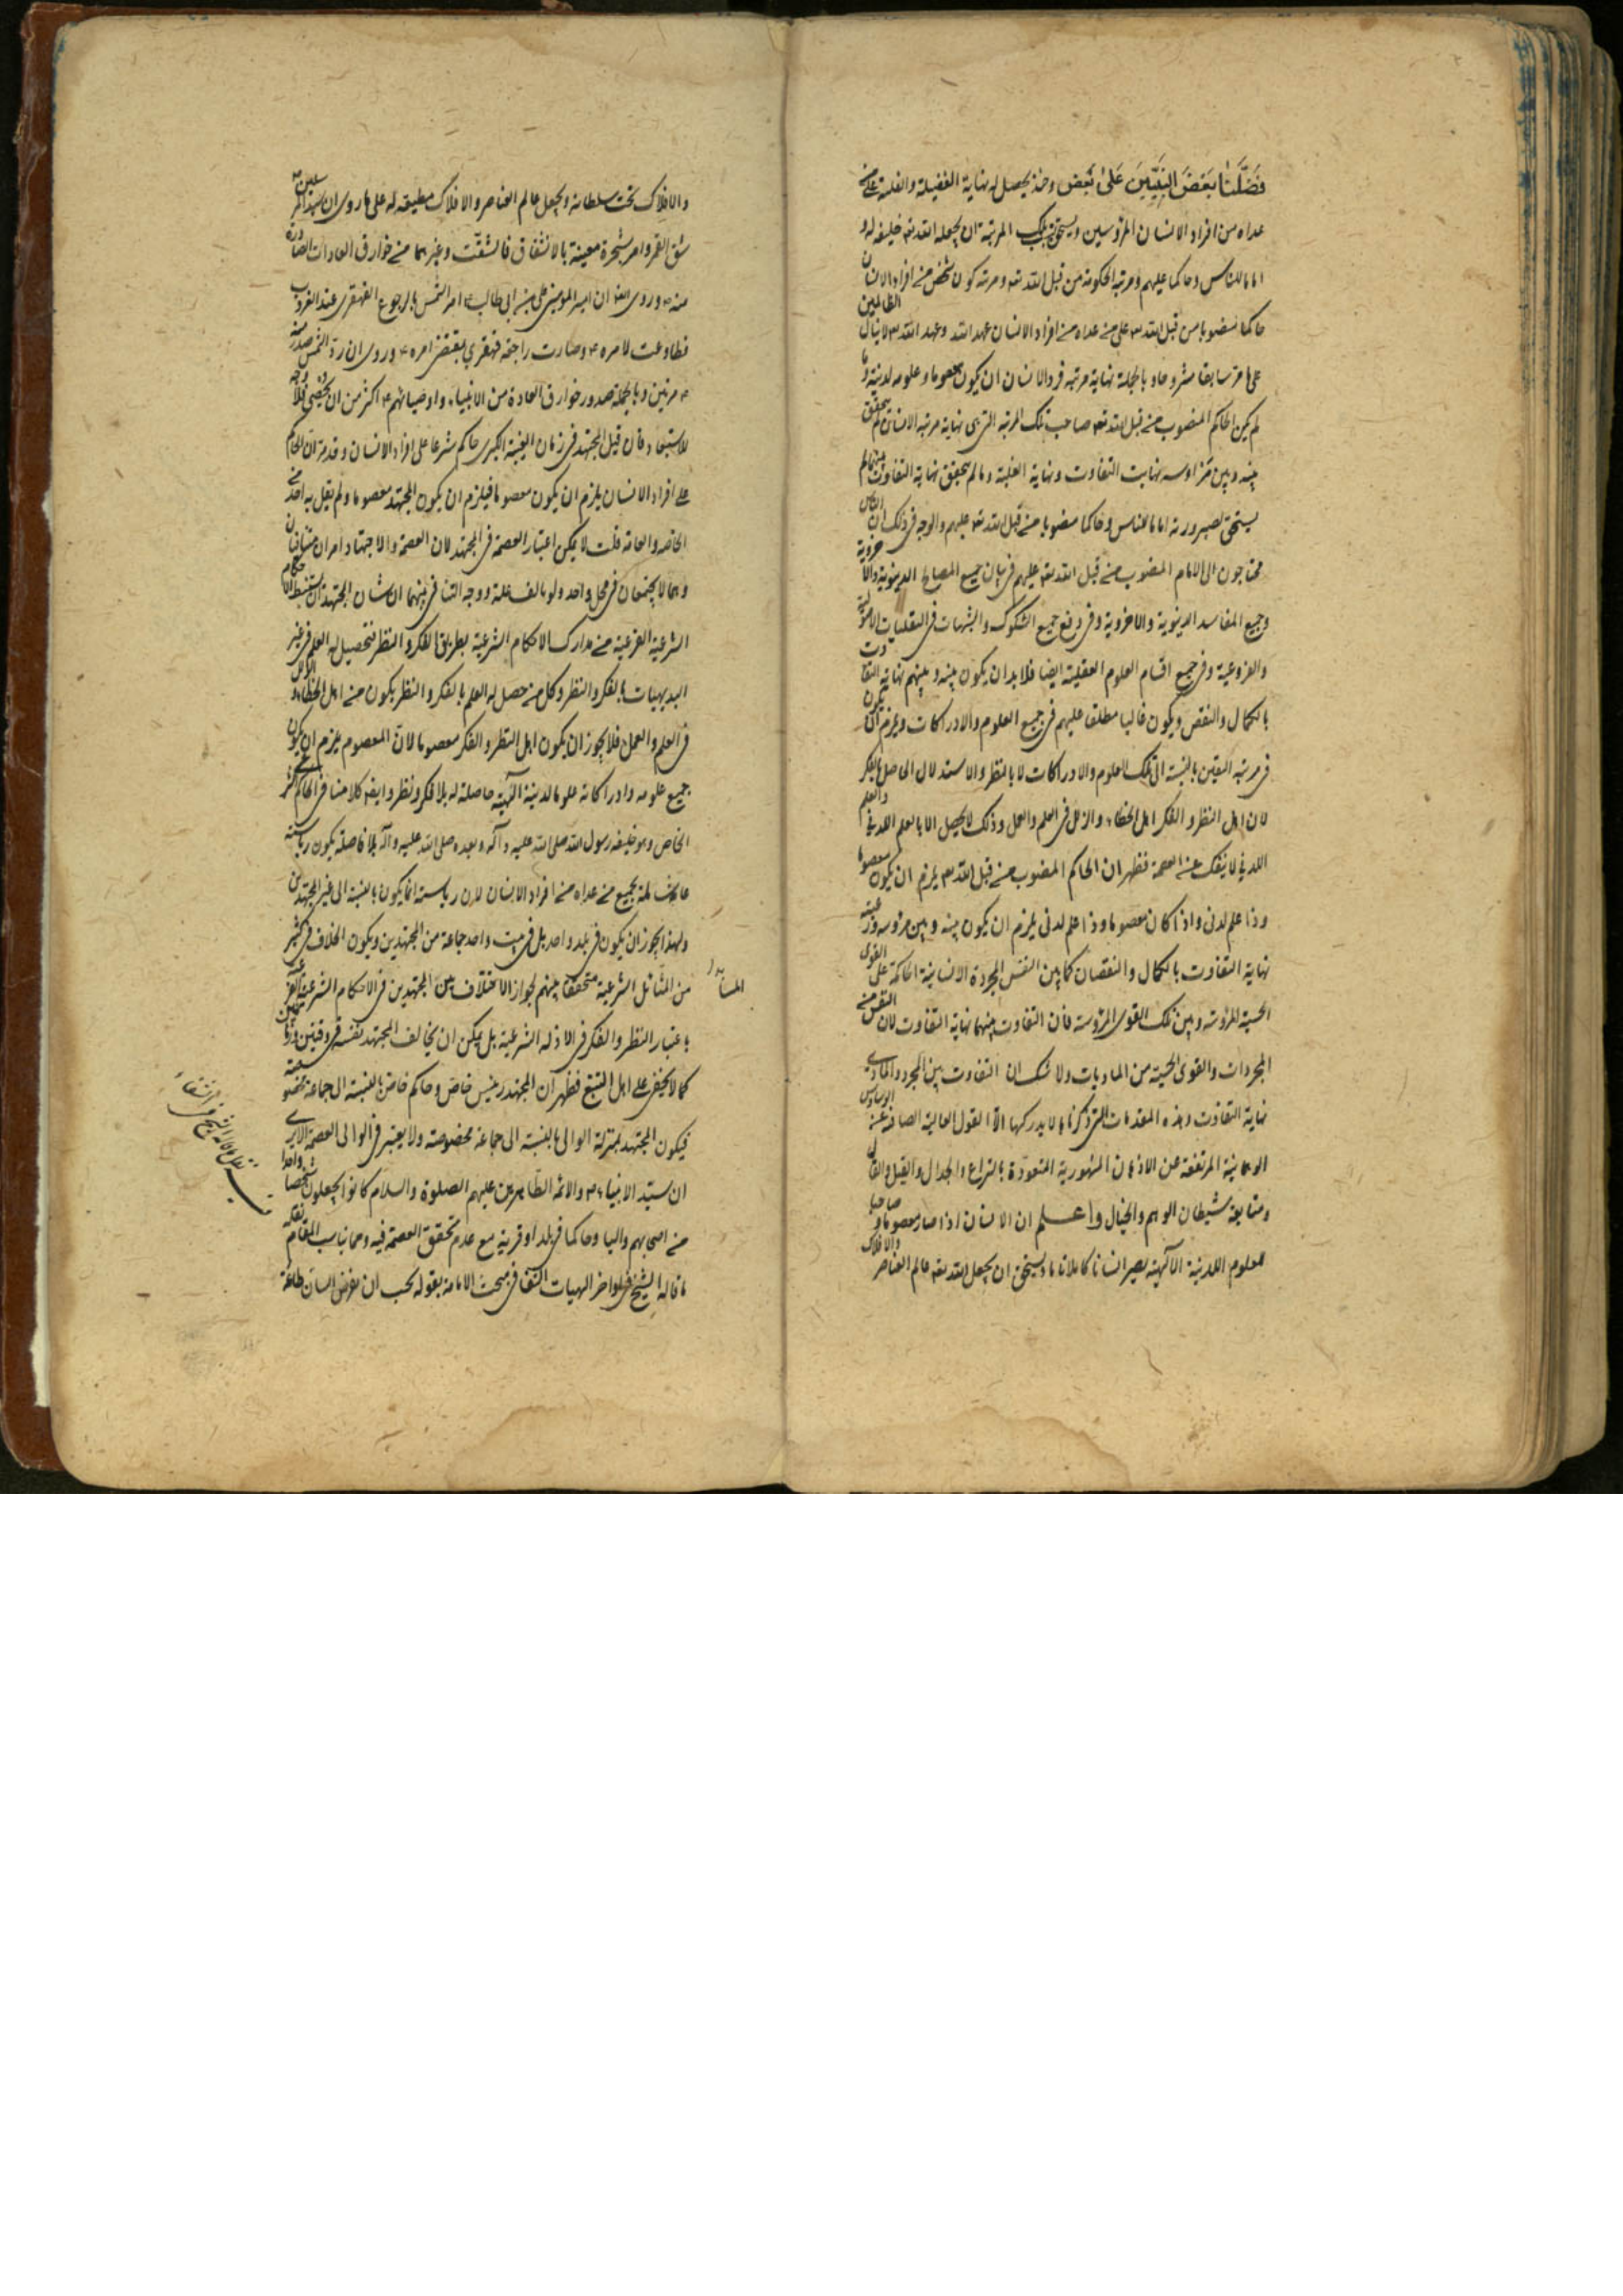 فَضَّلْنَا بَعْضَ النَّبِيِّينَ عَلَىٰ بَعْضٍ وحينئذ يحصل له نهاية الفضيلة والغلبة على من
عداه من افراد الانسان المرؤسين ويستحق بتلك المرتبة ان يجعله الله تعه خليفة له و
اماما للناس وحاكما عليهم ومرتبة الحكومة من قبل الله تعه ومرتبة كون شخص من افراد الانسان
حاكما منصوبا من قبل الله تعه على من عداه من افراد الانسان عهد الله وعهد الله تعه لا ينال الظالمين
على ما مر سابقا مشروحا وبالجملة نهاية مرتبة فرد الانسان ان يكون معصوما وعلومه لدنية وما
لم يكن الحاكم المنصوب من قبل الله تعه صاحب تلك المرتبة التي هى نهاية مرتبة الانسان لم يتحقق
بينه وبين مرؤسه نهايت التفاوت ونهاية الغلبة وما لم يتحقق نهاية التفاوت بينهما لم
يستحق لصيرورته اماما للناس وحاكما منصوبا من قبل الله تعه عليهم والوجه فى ذلك ان الناس
محتاجون الى الامام المنصوب من قبل الله تعه عليهم فى بيان جميع المصالح الدنيوية والاخروية
وجميع المفاسد الدنيوية والاخروية وفى دفع جميع الشكوك والشبهات فى النقليات الاصولية
والفروعية وفى جميع اقسام العلوم العقلية ايضا فلا بد ان يكون بينه وبينهم نهاية التفاوت
بالكمال والنقص ويكون غالبا مطلقا عليهم فى جميع العلوم والادراكات ويلزم ان يكون
فى مرتبة اليقين بالنسبة الى تلك العلوم والادراكات لا بالنظر والاستدلال الحاصل بالفكر
لان اهل النظر والفكر اهل الخطاء والزلل فى العلم والعمل وذلك لا يحصل الا بالعلم اللدنى والعلم
اللدنى لا ينفك عن العصمة فظهر ان الحاكم المنصوب من قبل الله تعه يلزم ان يكون معصوما
وذا علم لدنى واذا كان معصوما وذا علم لدنى يلزم ان يكون بينه وبين مرؤسه ورعيته
نهاية التفاوت بالكمال والنقصان كما بين النفس المجردة الانسانية الحاكمة على القوى
الحسية المرؤسة وبين تلك القوى المرؤسة فان التفاوت بينهما نهاية التفاوت لان النفس من
المجردات والقوى الحسية من الماديات ولا شك ان التفاوت بين المجرد والمادى
نهاية التفاوت وهذه المقدمات التى ذكرناها لا يدركها الا العقول العالية الصافية عن الوساوس
الوهمانية المرتفعة عن الاذهان المشهورية المتعودة بالنزاع والجدال والقيل والقال
ومتابعة شيطان الوهم والخيال واعلم ان الانسان اذا صار معصوما وصاحبا
للعلوم اللدنية الالهية يصير انسانا كاملا تاما ويستحق ان يجعل الله تعه عالم العناصر والافلاك
والافلاك تحت سلطانه ويجعل عالم العناصر والافلاك مطيعة له على ما روى ان سيد المرسلين ص
شق القمر وامر شجرة معينة بالانشقاق فانشقت وغيرهما من خوارق العادات الصادرة
منه ص وروى ايضا ان امير المؤمنين على بن ابى طالب ع امر الشمس بالرجوع القهقرى عند الغروب
فطاوعت لامره ع وصارت راجعة قهقرى بمقتضى امره ع وروى ان رد الشمس صدر منه
ع مرتين وبالجملة صدور خوارق العادة من الانبياء واوصيائهم ع اكثر من ان يحصى فلا وجه
للاستبعاد فان قيل المجتهد فى زمان الغيبة الكبرى حاكم شرعا على افراد الانسان وقد مر ان الحاكم
على افراد الانسان يلزم ان يكون معصوما فيلزم ان يكون المجتهد معصوما ولم يقل به احد من
الخاصة والعامة قلت لا يمكن اعتبار العصمة فى المجتهد لان العصمة والاجتهاد امران متنافيان
وهما لا يجتمعان فى محل واحد ولو بالف علة ووجه التنافى بينهما ان شان المجتهد ان يستنبط الاحكام
الشرعية الفرعية من مدارك الاحكام الشرعية بطريق الفكر والنظر فتحصيل له العلم فى غير
البديهيات بالفكر والنظر وكل من حصل له العلم بالفكر والنظر يكون من اهل الخطاء والزلل
فى العلم والعمل فلا يجوز ان يكون اهل النظر والفكر معصوما لان المعصوم يلزم ان يكون
جميع علومه وادراكاته علوما لدنية الهية حاصلة له بلا فكر ونظر وايضا كلامنا فى الحاكم الشرعى
الخاص وهو خليفة رسول الله صلى الله عليه وآله وبعده صلى الله عليه وآله بلا فاصلة يكون رياسته
عامة شاملة لجميع من عداه من افراد الانسان لان رياسته انما يكون بالنسبة الى غير المجتهدين
ولهذا يجوز ان يكون فى بلد واحد بل فى بيت واحد جماعة من المجتهدين ويكون الخلاف فى كثير
من المسائل الشرعية متحققا بينهم لجواز الاختلاف بين المجتهدين فى الاحكام الشرعية الفرعية
باعتبار النظر والفكر فى الادلة الشرعية بل يمكن ان يخالف المجتهد نفسه فى وقتين وزمانين
كما لا يخفى على اهل التتبع فظهر ان المجتهد رئيس خاص وحاكم خاص بالنسبة الى جماعة مخصوصة
فيكون المجتهد بمنزلة الوالى بالنسبة الى جماعة مخصوصة ولا يعتبر فى الوالى العصمة الا يرى
ان سيد الانبياء ص والائمة الطاهرين عليهم الصلوة والسلام كانوا يجعلون شخصا واحدا
من اصحابهم واليا وحاكما فى بلد او قرية مع عدم تحقق العصمة فيه ومما يناسب المقام نقله
ما قاله الشيخ فى اواخر الهيات الشفا فى مبحث الامامة بقوله يجب ان يفرض السان طاعة
نقل ما قاله الشيخ فى الشفاء